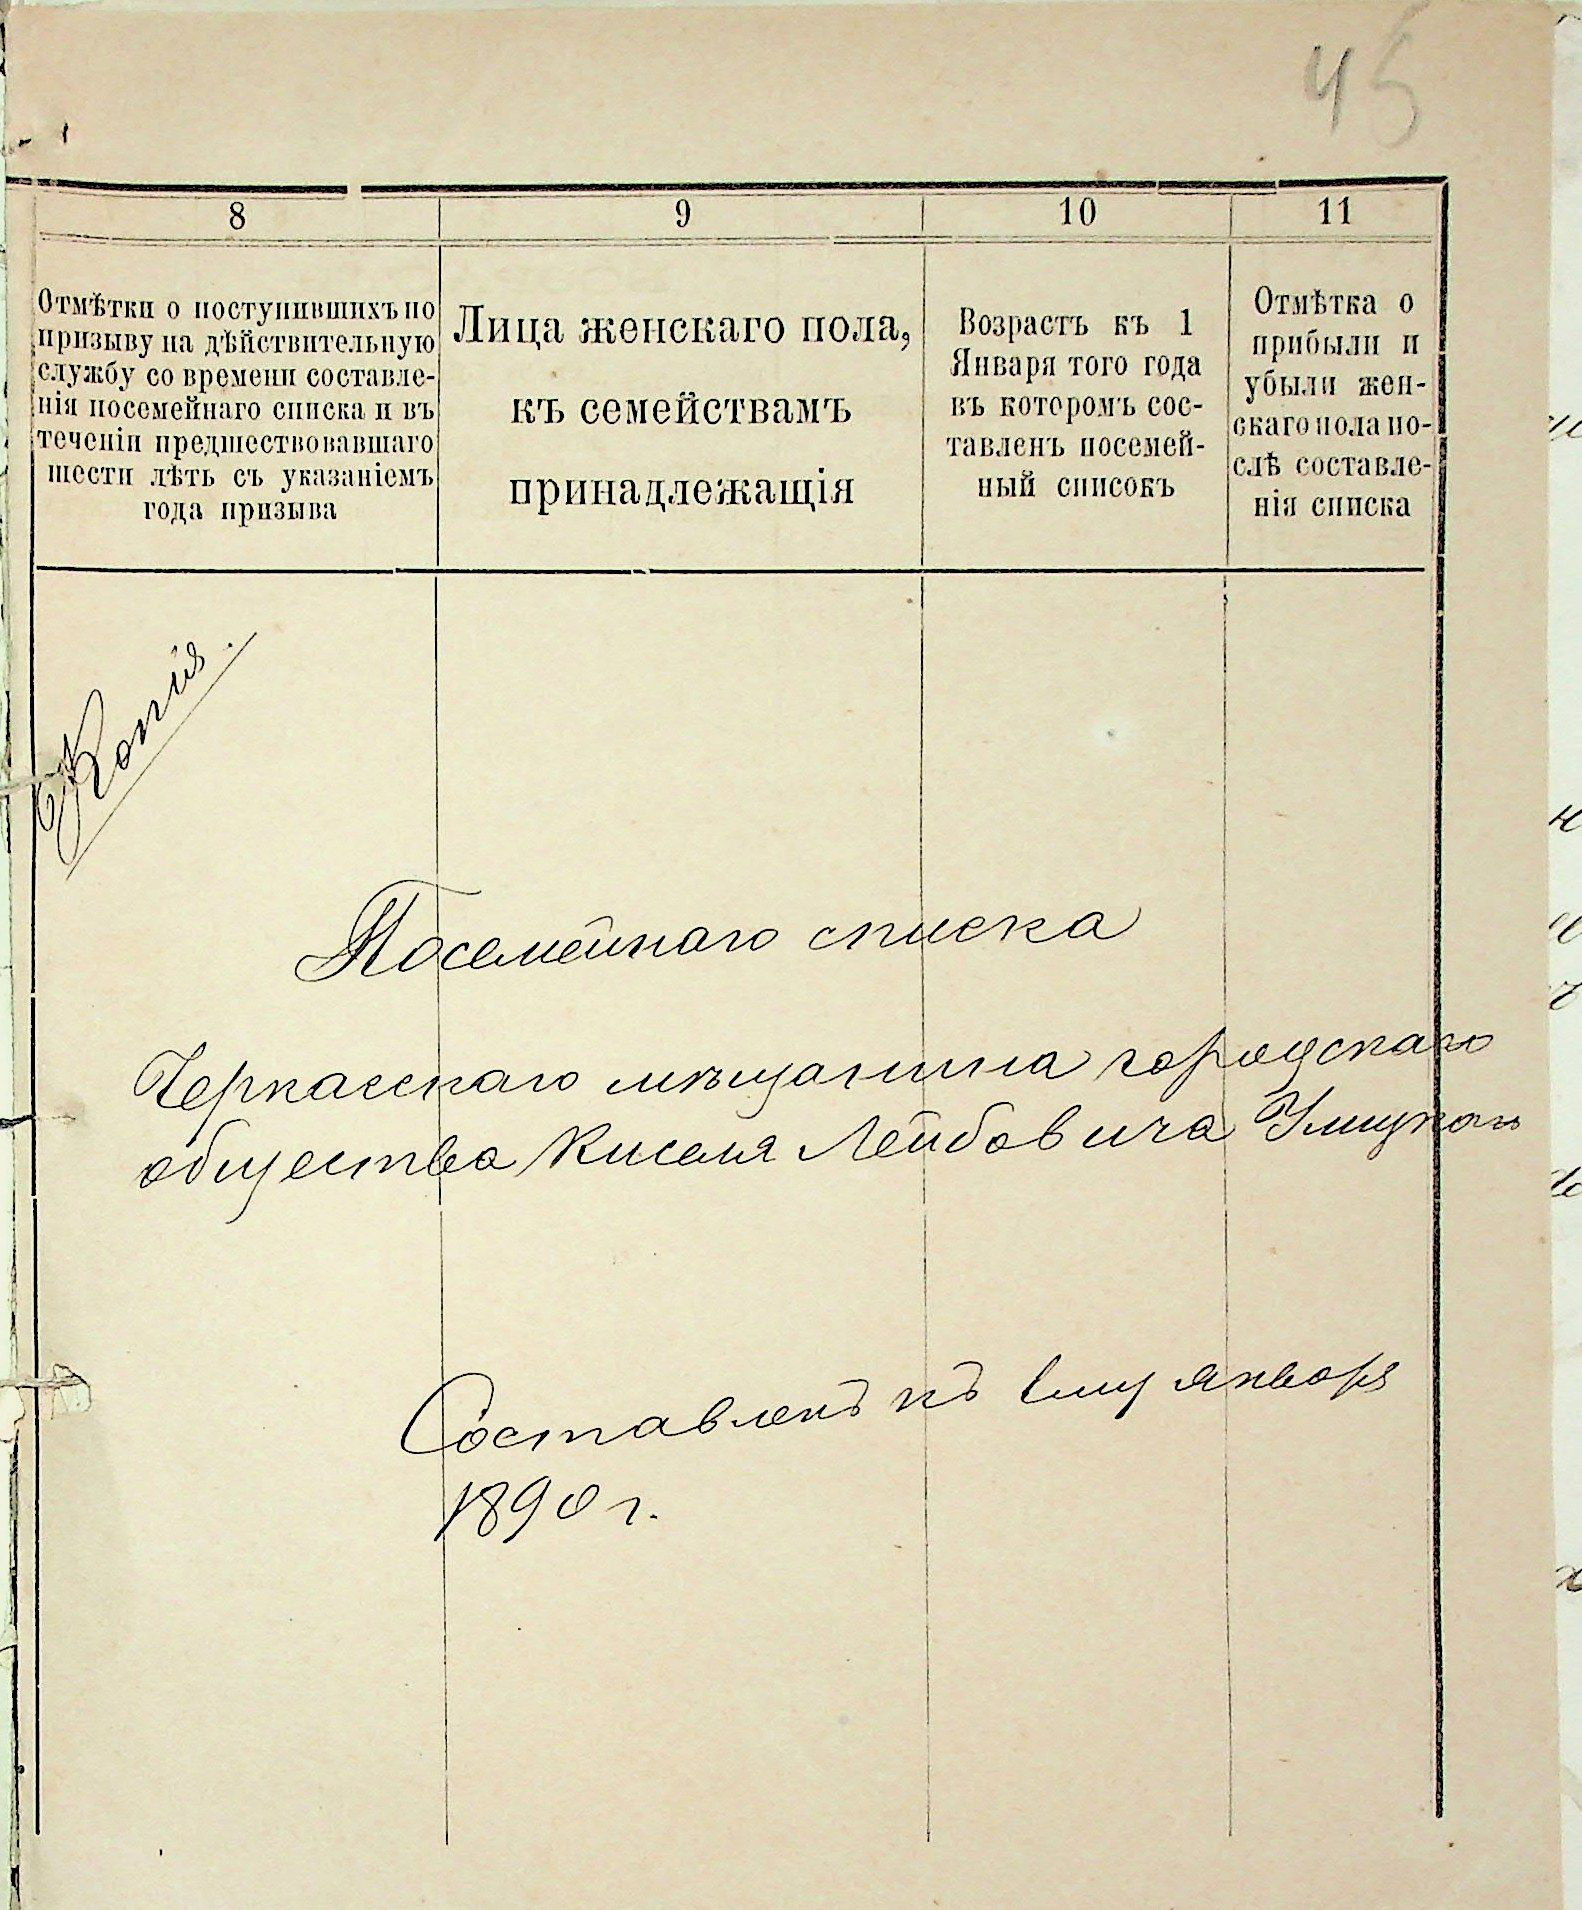 45
8 9 10 11
Отмѣтки о поступившихъ по
призыву на дѣйствительную
службу со времени составле-
нія посемейнаго списка и въ
теченіи предшествовавшаго
шести лѣть съ указаніемъ
года призыва
Лица женскаго пола,
къ семействамъ
принадлежащія
Возрастъ къ 1
Января того года
въ которомъ сос-
тавленъ посемей-
ный списокъ
Отмѣтка о
прибыли и
убыли жен-
скаго пола по-
слѣ составле-
нія списка
Копія.
Посемейнаго списка
Черкасскаго мѣщанина городскаго
общества Киселя Лейбовича
Составленъ къ 1му января
1890 г.